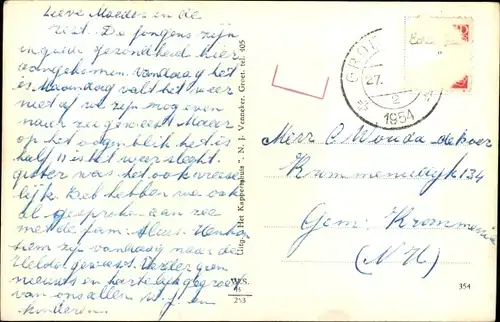 Lieve Moeder en de
rest. De jongens zijn
in goede gezondheid hier
aangekomen. Vandaag het
is Maandag valt het weer
niet af we zijn nog even
naar zee geweest Maar
op het oogenblik het is
half 11 is het weer slecht.
gister was het ook vreese
lijk. Heb hebben we ook
al gesproken aan zee
met de fam.
zijn vandaag naar de
Helder geweest. Verder geen
nieuws en hartelijk gegroet
van ons allen W. J. en
kinderen.
Uitg. „Het Kappershuis” N. J. Venneker. Groet. tel. 405
W.S.
253
GROE
27.
2
1954
Merr C Wouda de boer
Krommeniedijk 134
Gem. Krommenie
(N H)
354